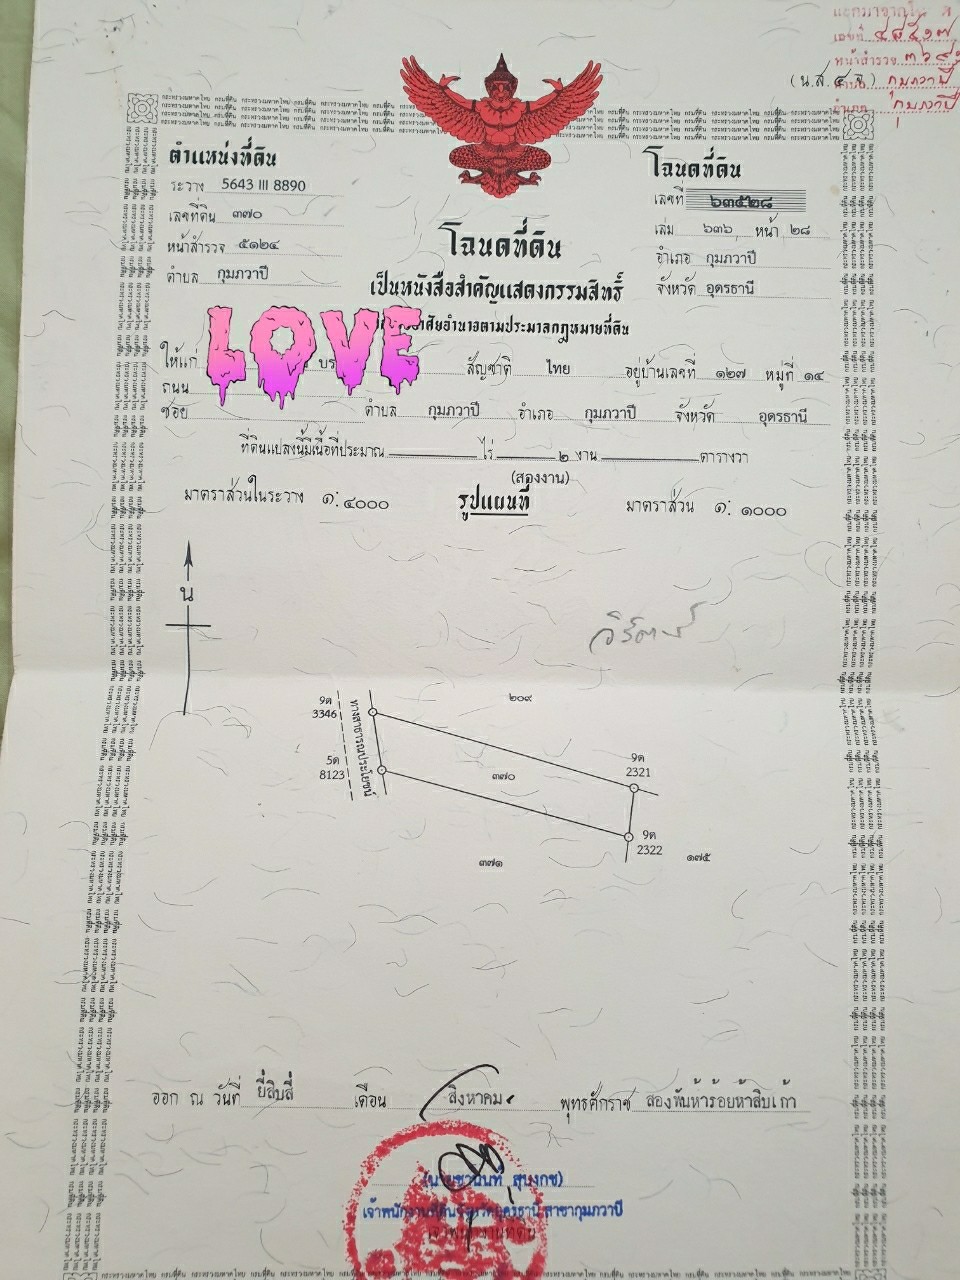 เลขที่ ๔๘๕๑๗
หน้าสำรวจ
กุมภวาปี
(น.ส. ๔ จ.)
อำเภอ กุมภวาปี
ตำแหน่งที่ดิน
โฉนดที่ดิน
ระวาง 5643 III 8890
เลขที่ ๖๓๕๒๘
เลขที่ดิน ๓๗๐
เล่ม ๖๓๖ หน้า ๒๘
หน้าสำรวจ ๕๑๒๔
โฉนดที่ดิน
อำเภอ กุมภวาปี
ตำบล กุมภวาปี
จังหวัด อุดรธานี
เป็นหนังสือสำคัญแสดงกรรมสิทธิ์
อาศัยอำนาจตามประมวลกฎหมายที่ดิน
LOVE
ให้แก่ สัญชาติ ไทย อยู่บ้านเลขที่ ๑๒๗ หมู่ที่ ๑๔
ถนน
ซอย ตำบล กุมภวาปี อำเภอ กุมภวาปี จังหวัด อุดรธานี
ที่ดินแปลงนี้มีเนื้อที่ประมาณ ไร่ ๒ งาน ตารางวา
(สองงาน)
มาตราส่วนในระวาง ๑: ๔๐๐๐ รูปแผนที่ มาตราส่วน ๑: ๑๐๐๐
น
๒๐๙
9ด
3346
ทางสาธารณประโยชน์
5ด
8123
๓๗๐
9ด
2321
9ด
2322
๓๗๑
๑๗๕
ออก ณ วันที่ ยี่สิบสี่ เดือน สิงหาคม พุทธศักราช สองพันห้าร้อยห้าสิบเก้า
เจ้าพนักงานที่ดินจังหวัดอุดรธานี สาขากุมภวาปี
เจ้าพนักงานที่ดิน
กระทรวงมหาดไทย กรมที่ดิน